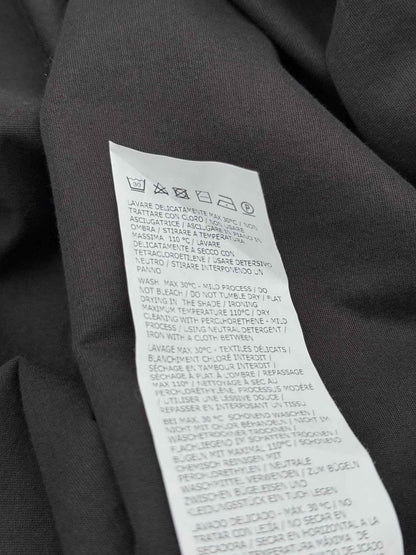 30
P
LAVARE DELICATAMENTE MAX 30°C / NON
TRATTARE CON CLORO / NON
ASCIUGATRICE / ASCIUGARE IN PIANO IN
OMBRA / STIRARE A TEMPERATURA
MASSIMA 110 °C / LAVARE
DELICATAMENTE A SECCO CON
TETRACLOROETILENE / USARE DETERSIVO
NEUTRO / STIRARE INTERPONENDO UN
PANNO
WASH MAX 30°C - MILD PROCESS / DO
NOT BLEACH / DO NOT TUMBLE DRY / FLAT
DRYING IN THE SHADE / IRONING
MAXIMUM TEMPERATURE 110°C / DRY
CLEANING WITH PERCHLORETHENE - MILD
PROCESS / USING NEUTRAL DETERGENT /
IRON WITH A CLOTH BETWEEN
LAVAGE MAX. 30°C - TEXTILES DÉLICATS /
BLANCHIMENT CHLORÉ INTERDIT /
SÉCHAGE EN TAMBOUR INTERDIT /
SÉCHAGE À PLAT À L'OMBRE / REPASSAGE
MAX 110° / NETTOYAGE À SEC AU
PERCHLORÉTHYLÈNE, PROCESSUS MODÉRÉ
/ UTILISER UNE LESSIVE DOUCE /
REPASSER EN INTERPOSANT UN TISSU
BEI MAX. 30 °C SCHONEND WASCHEN /
NICHT MIT CHLOR BEHANDELN / NICHT IM
WÄSCHETROCKNER TROCKNEN /
FLACHLIEGEND IM SCHATTEN TROCKNEN /
BÜGELN MIT MAXIMAL 110°C /
CHEMISCH REINIGEN MIT
PERCHLORETHYLEN / NEUTRALE
WASCHMITTEL / ZUM BÜGELN
ZWISCHEN BÜGELEISEN UND
KLEIDUNGSSTÜCK EIN TUCH LEGEN
LAVADO DELICADO - MÁX. 30 °C / NO
TRATAR CON LEJÍA / NO SECAR EN
SECADORA / SECAR EN HORIZONTAL A LA
SOMBRA /
TEMPERATURA MÁXIMA DE